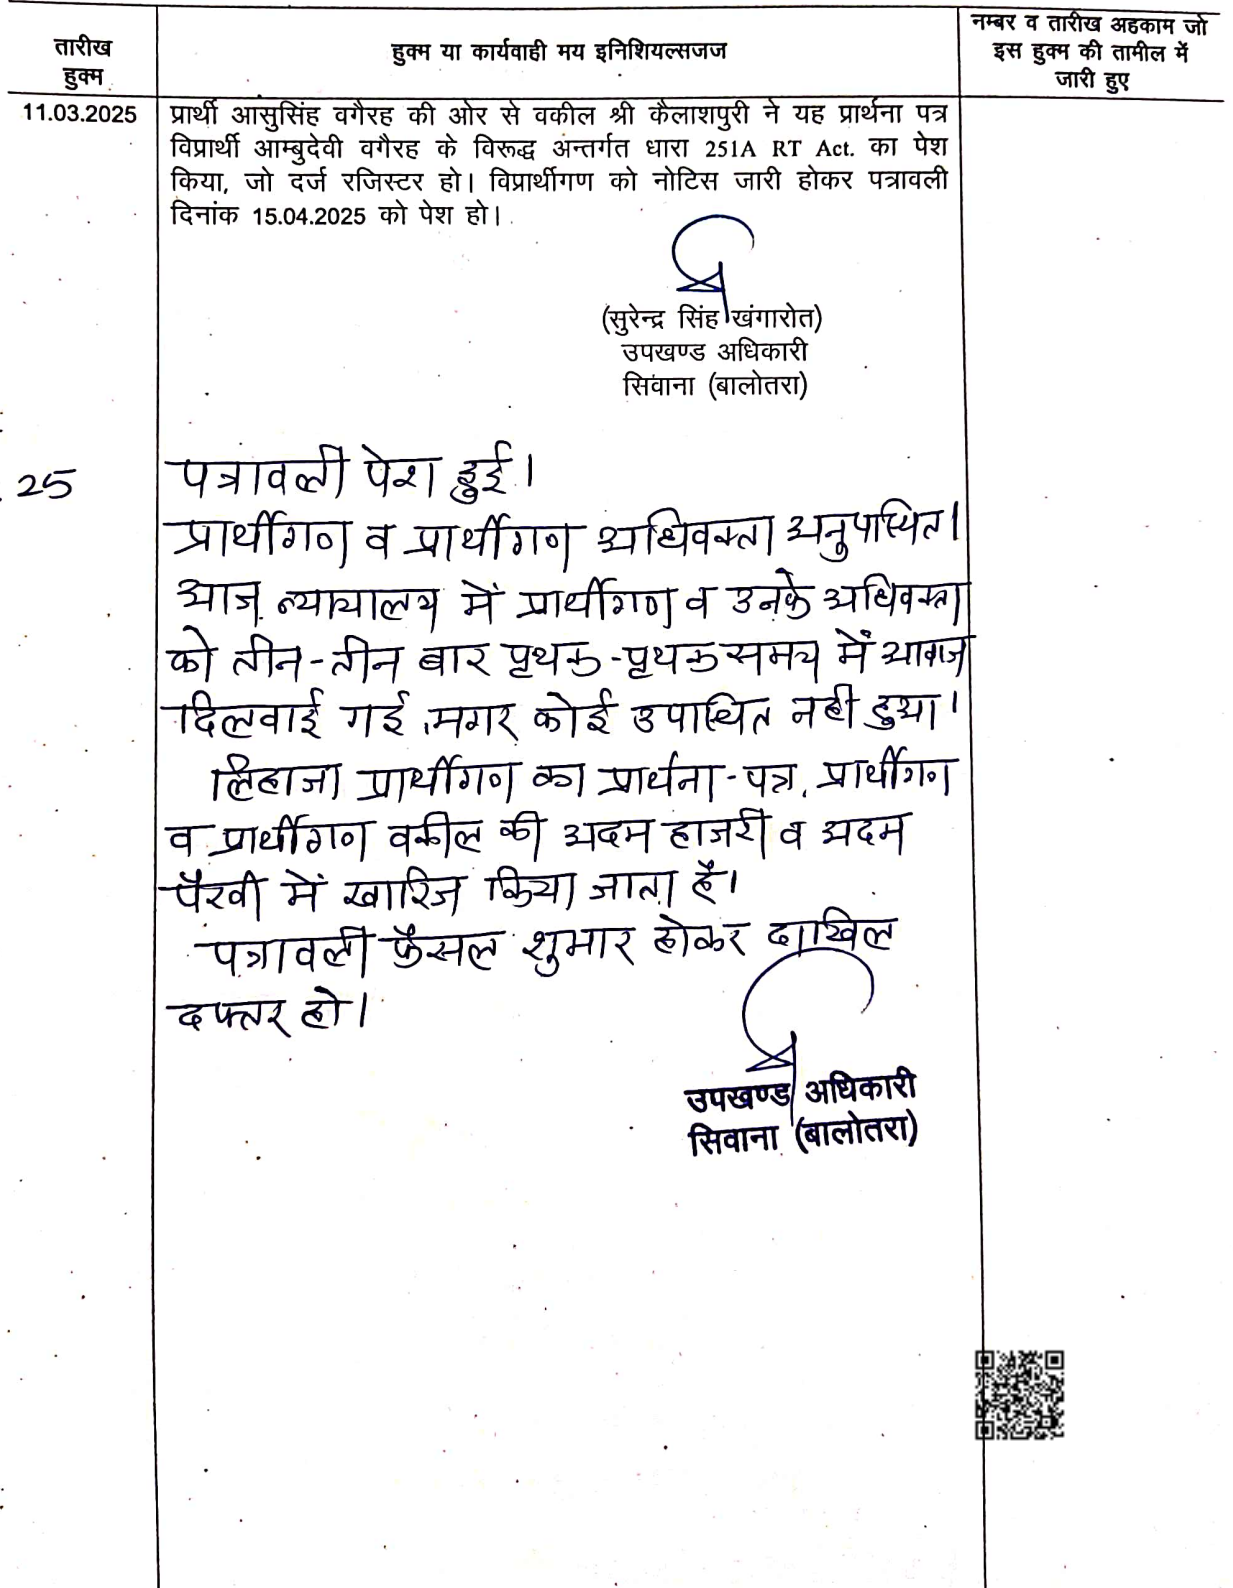 तारीख
हुक्म
हुक्म या कार्यवाही मय इनिशियल्सजज
नम्बर व तारीख अहकाम जो
इस हुक्म की तामील में
जारी हुए
11.03.2025
प्रार्थी आसुसिंह वगैरह की ओर से वकील श्री कैलाशपुरी ने यह प्रार्थना पत्र
विप्रार्थी आम्बुदेवी वगैरह के विरूद्ध अन्तर्गत धारा 251A RT Act. का पेश
किया, जो दर्ज रजिस्टर हो। विप्रार्थीगण को नोटिस जारी होकर पत्रावली
दिनांक 15.04.2025 को पेश हो।
(सुरेन्द्र सिंह खंगारोत)
उपखण्ड अधिकारी
सिवाना (बालोतरा)
25
पत्रावली पेश हुई।
प्रार्थीगण व प्रार्थीगण अधिवक्ता अनुपस्थित।
आज न्यायालय में प्रार्थीगण व उनके अधिवक्ता
को तीन-तीन बार पृथक-पृथक समय में आवाज
दिलवाई गई, मगर कोई उपस्थित नही हुआ।
लिहाजा प्रार्थीगण का प्रार्थना-पत्र, प्रार्थीगण
व प्रार्थीगण वकील की अदम हाजरी व अदम
पैरवी में खारिज किया जाता है।
पत्रावली फैसल शुमार होकर दाखिल
दफ्तर हो।
उपखण्ड अधिकारी
सिवाना (बालोतरा)